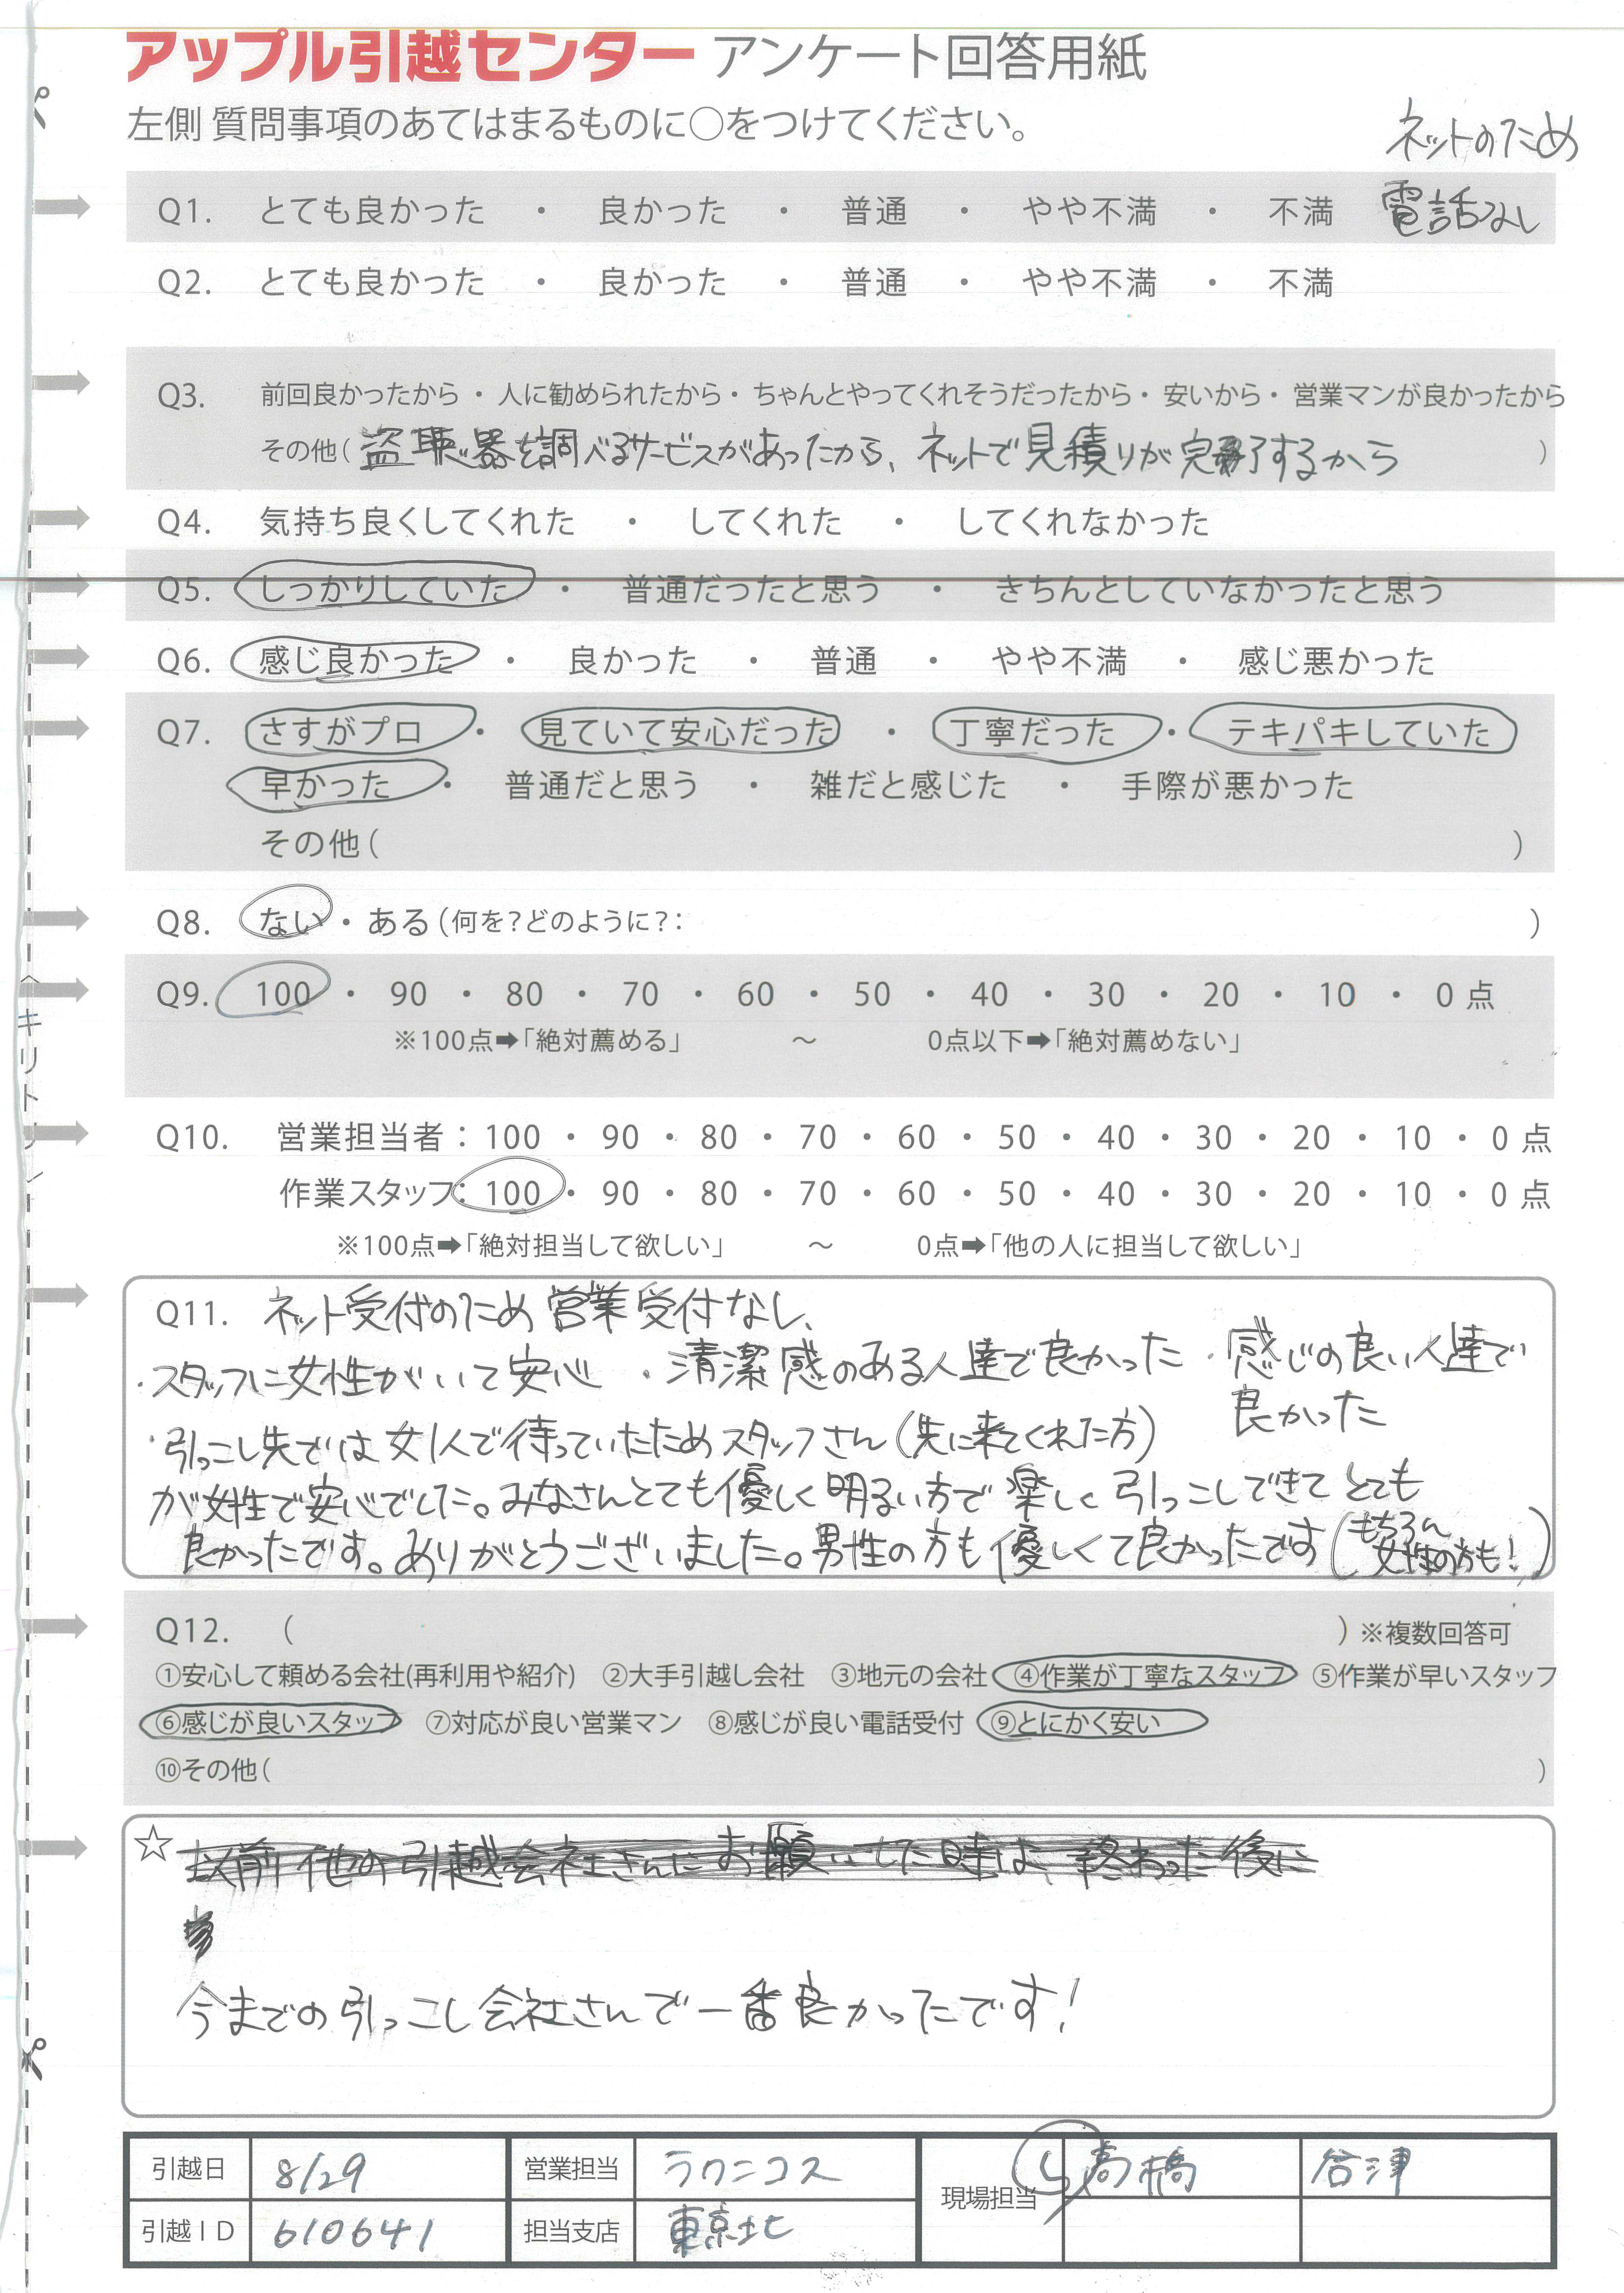 アップル引越センター アンケート回答用紙
左側 質問事項のあてはまるものに○をつけてください。
ネットのため
電話なし
Q1. とても良かった ・ 良かった ・ 普通 ・ やや不満 ・ 不満
Q2. とても良かった ・ 良かった ・ 普通 ・ やや不満 ・ 不満
Q3. 前回良かったから ・ 人に勧められたから ・ ちゃんとやってくれそうだったから ・ 安いから ・ 営業マンが良かったから
その他( 盗聴器を調べるサービスがあったから、ネットで見積りが完了するから )
Q4. 気持ち良くしてくれた ・ してくれた ・ してくれなかった
Q5. しっかりしていた ・ 普通だったと思う ・ きちんとしていなかったと思う
Q6. 感じ良かった ・ 良かった ・ 普通 ・ やや不満 ・ 感じ悪かった
Q7. さすがプロ ・ 見ていて安心だった ・ 丁寧だった ・ テキパキしていた
早かった ・ 普通だと思う ・ 雑だと感じた ・ 手際が悪かった
その他( )
Q8. ない ・ ある(何を?どのように?: )
Q9. 100 ・ 90 ・ 80 ・ 70 ・ 60 ・ 50 ・ 40 ・ 30 ・ 20 ・ 10 ・ 0 点
※100点➡「絶対薦める」 ～ 0点以下➡「絶対薦めない」
キリトリ
Q10. 営業担当者:100 ・ 90 ・ 80 ・ 70 ・ 60 ・ 50 ・ 40 ・ 30 ・ 20 ・ 10 ・ 0 点
作業スタッフ:100 ・ 90 ・ 80 ・ 70 ・ 60 ・ 50 ・ 40 ・ 30 ・ 20 ・ 10 ・ 0 点
※100点➡「絶対担当して欲しい」 ～ 0点➡「他の人に担当して欲しい」
Q11. ネット受付のため営業受付なし、
・スタッフに女性がいて安心 ・清潔感のある人達で良かった ・感じの良い人達で
良かった
・引っこし先では女1人で待っていたためスタッフさん(先に来てくれた方)
が女性で安心でした。みなさんとても優しく明るい方で楽しく引っこしできてとても
良かったです。ありがとうございました。男性の方も優しくて良かったです(もちろん
女性の方も!)
Q12. ( ) ※複数回答可
①安心して頼める会社(再利用や紹介) ②大手引越し会社 ③地元の会社 ④作業が丁寧なスタッフ ⑤作業が早いスタッフ
⑥感じが良いスタッフ ⑦対応が良い営業マン ⑧感じが良い電話受付 ⑨とにかく安い
⑩その他( )
☆ 以前他の引越会社さんにお願いした時は、終わった後に
今までの引っこし会社さんで一番良かったです!
引越日 8/29 営業担当 ラクニコス 現場担当 L 高橋 谷津
引越ID 610641 担当支店 東京北